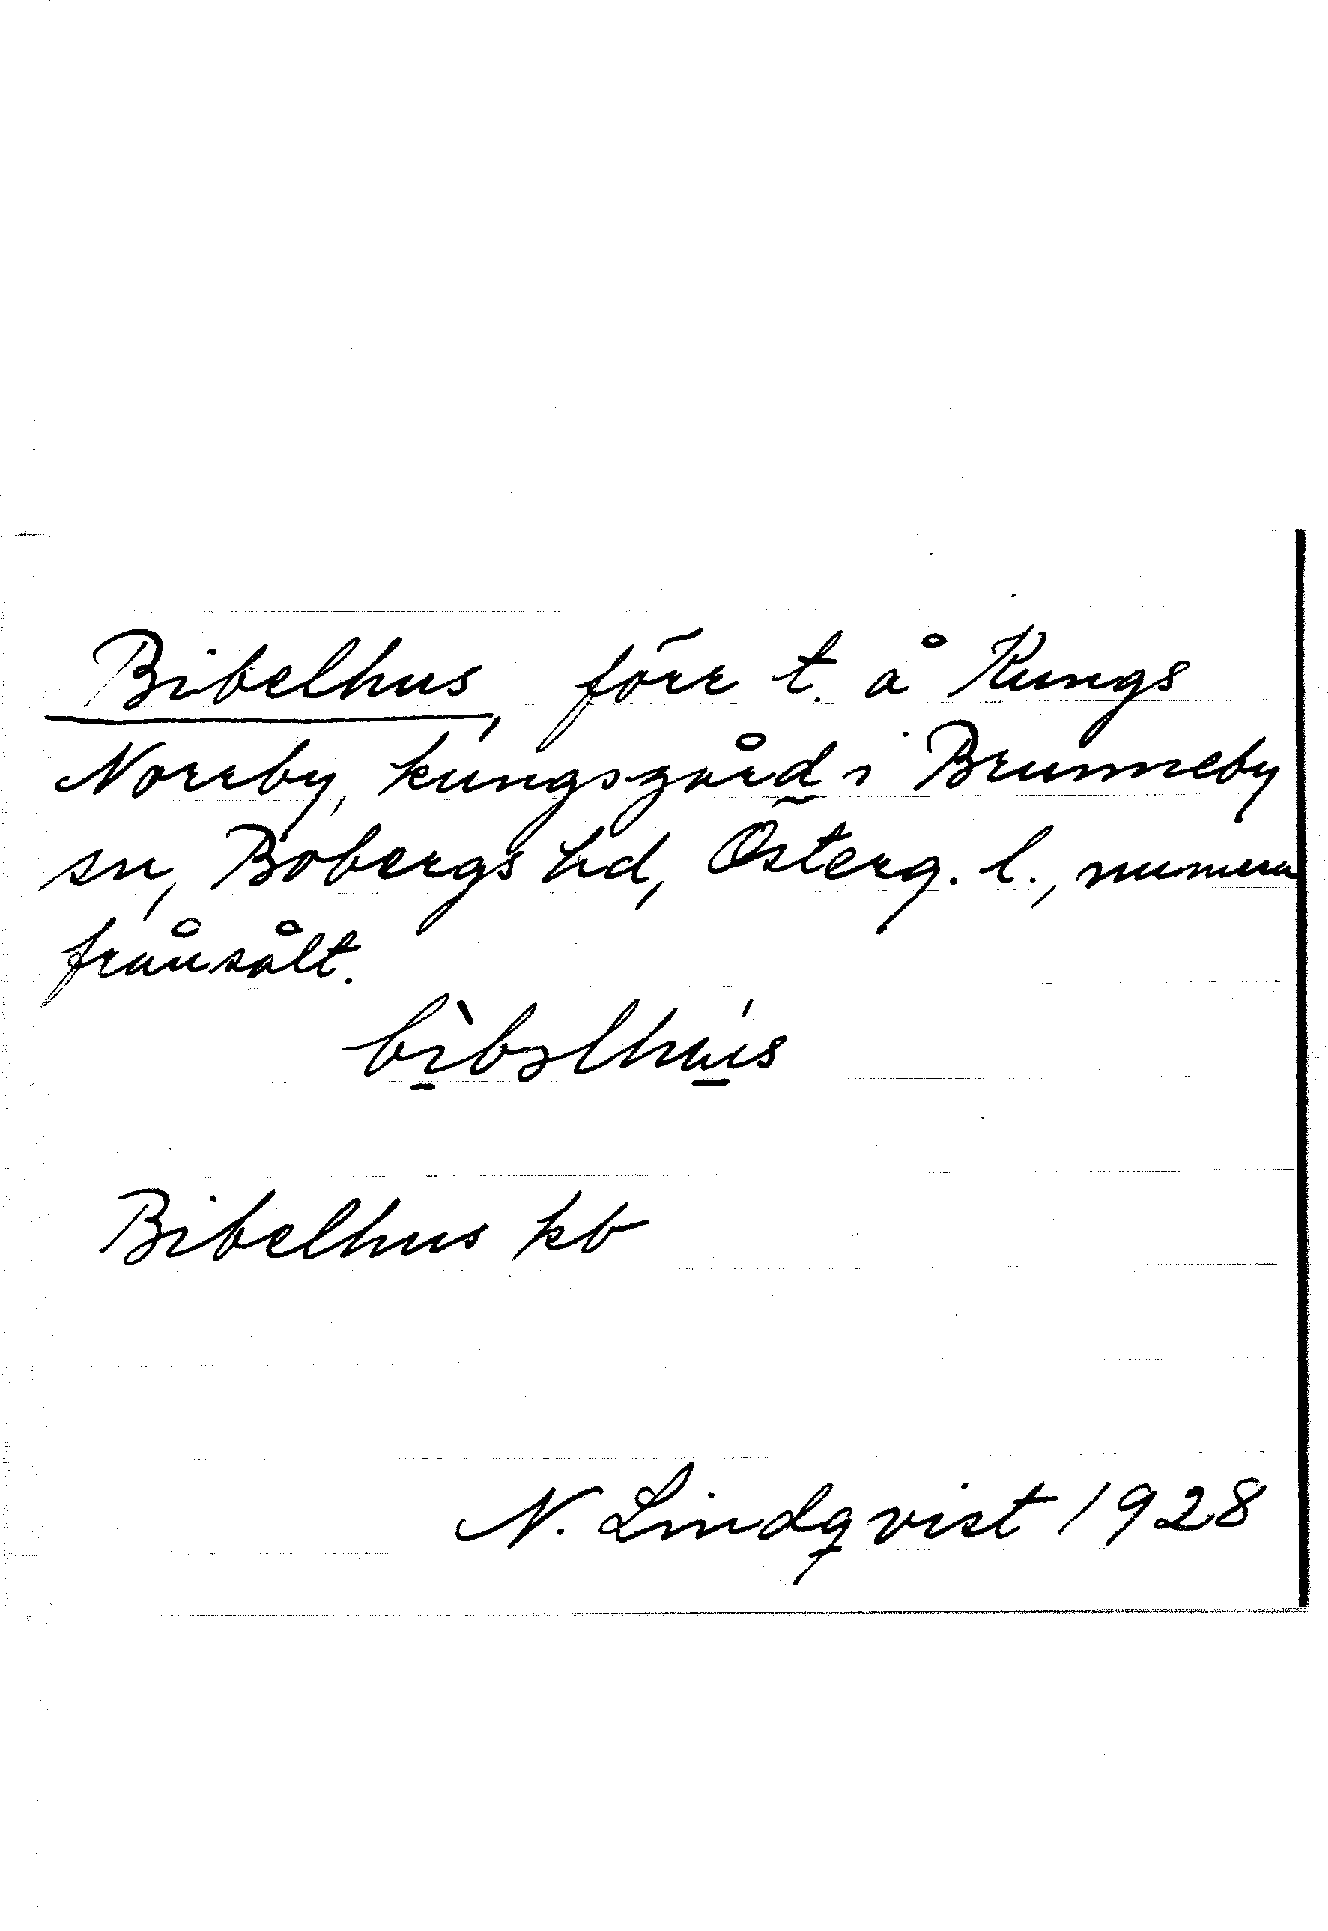 Bibelhus, förr t. å Kungs
Norrby, kungsgård i Brunneby
sn, Bobergs hd, Österg. l., numera
frånsålt.
bìbəlhús
Bibelhus kb
N. Lindqvist 1928